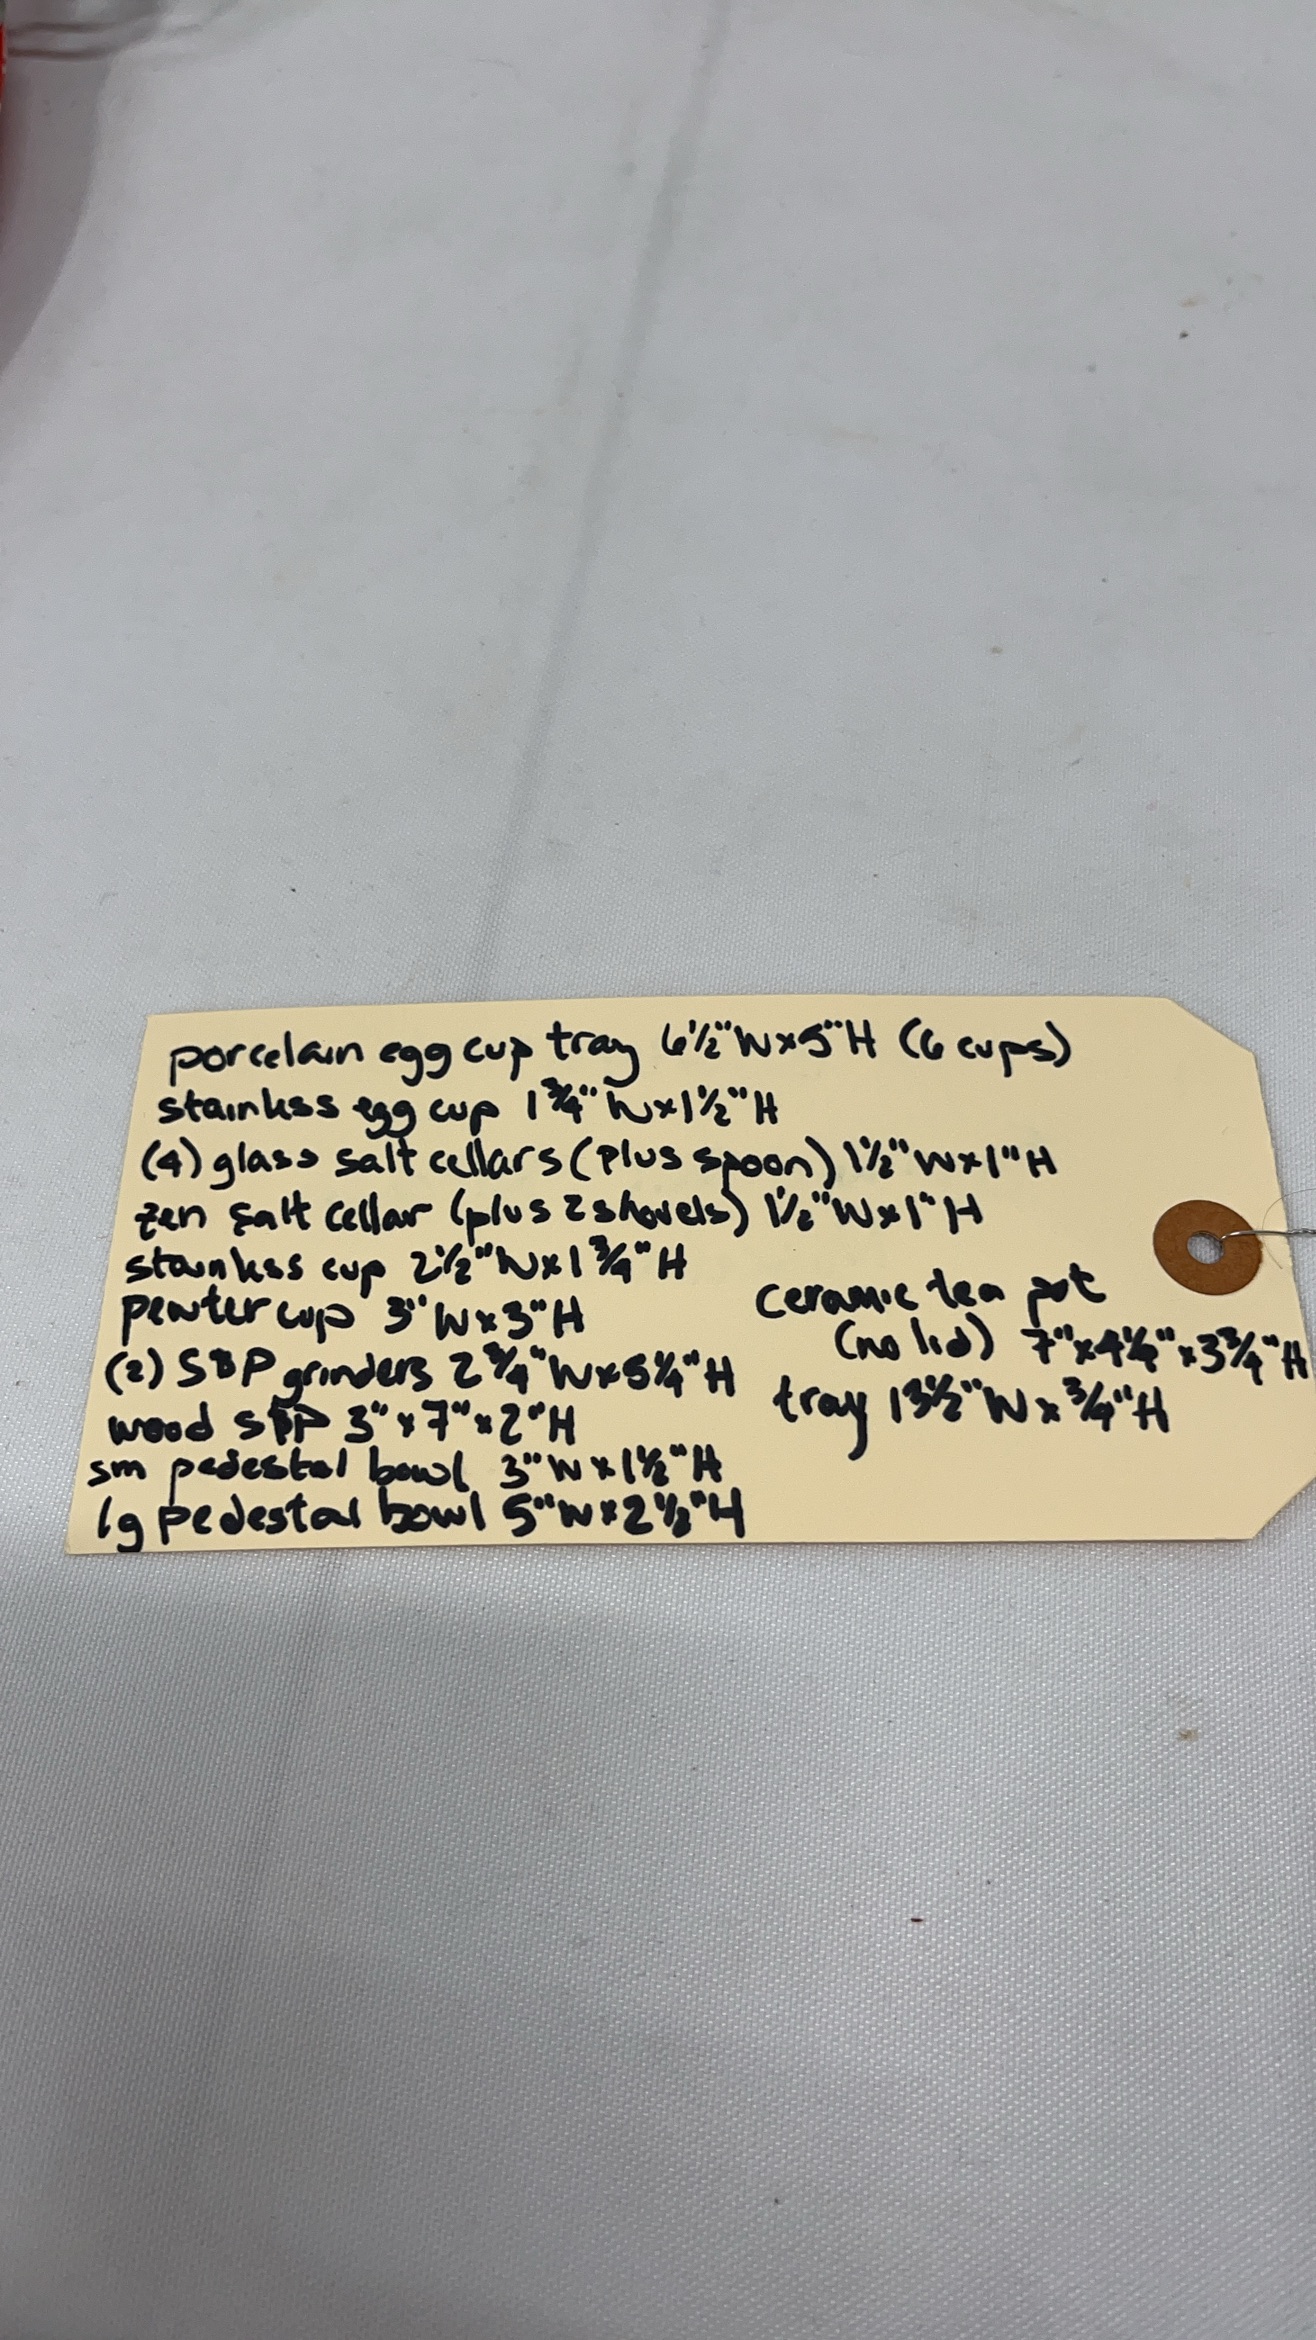 porcelain egg cup tray 6½"W x 5"H (6 cups)
stainless egg cup 1¾"W x 1½"H
(4) glass salt cellars (plus spoon) 1½"W x 1"H
zen salt cellar (plus 2 shovels) 1½"W x 1"H
stainless cup 2½"W x 1¾"H
pewter cup 3"W x 3"H
(2) S&P grinders 2¾"W x 5¼"H
wood S&P 3" x 7" x 2"H
sm pedestal bowl 3"W x 1½"H
lg pedestal bowl 5"W x 2½"H
ceramic tea pot
(no lid) 7" x 4¼" x 3¾"H
tray 13½"W x ¾"H